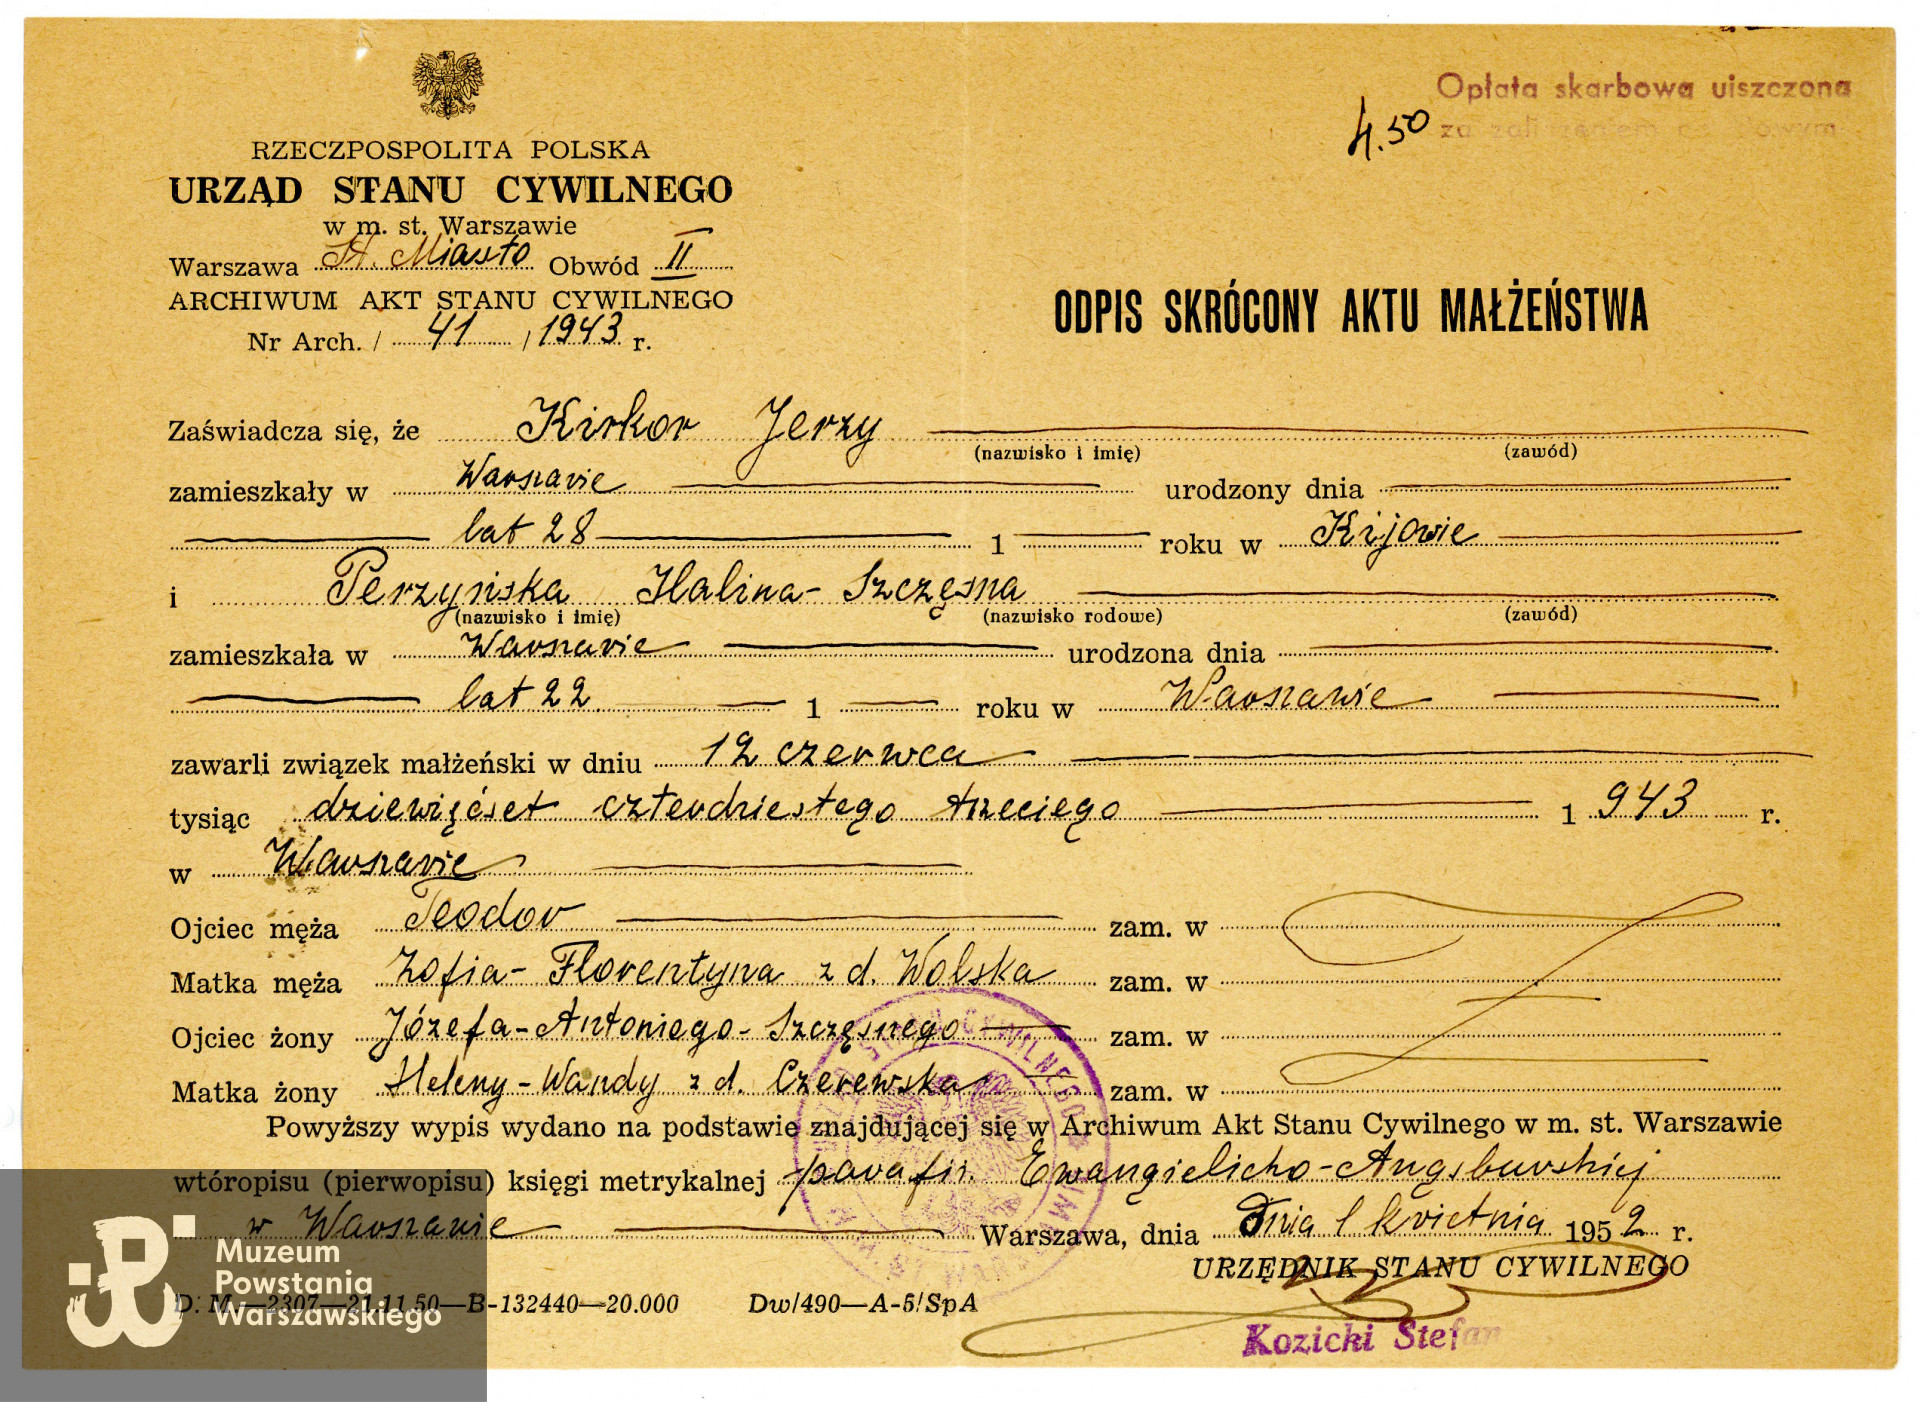 Opłata skarbowa uiszczona
4.50
RZECZPOSPOLITA POLSKA
URZĄD STANU CYWILNEGO
w m. st. Warszawie
Warszawa St. Miasto Obwód II
ARCHIWUM AKT STANU CYWILNEGO
Nr Arch. / 41 / 1943 r.
ODPIS SKRÓCONY AKTU MAŁŻEŃSTWA
Zaświadcza się, że Kirkor Jerzy
(nazwisko i imię) (zawód)
zamieszkały w Warszawie urodzony dnia
lat 28 1 roku w Kijowie
i Perzyńska Halina-Szczęsna
(nazwisko i imię) (nazwisko rodowe) (zawód)
zamieszkała w Warszawie urodzona dnia
lat 22 1 roku w Warszawie
zawarli związek małżeński w dniu 12 czerwca
tysiąc dziewięćset czterdziestego trzeciego 1 943 r.
w Warszawie
Ojciec męża Teodor zam. w
Matka męża Zofia-Florentyna z d. Wolska zam. w
Ojciec żony Józefa-Antoniego-Szczęsnego zam. w
Matka żony Heleny-Wandy z d. Czerewska zam. w
Powyższy wypis wydano na podstawie znajdującej się w Archiwum Akt Stanu Cywilnego w m. st. Warszawie
wtóropisu (pierwopisu) księgi metrykalnej parafii Ewangielicko-Augsburskiej
w Warszawie Warszawa, dnia Dnia 1 kwietnia 1952 r.
URZĘDNIK STANU CYWILNEGO
D. M.—2307—21.11.50—B-132440—20.000 Dw/490—A-5/SpA
Kozicki Stefan
Muzeum
Powstania
Warszawskiego